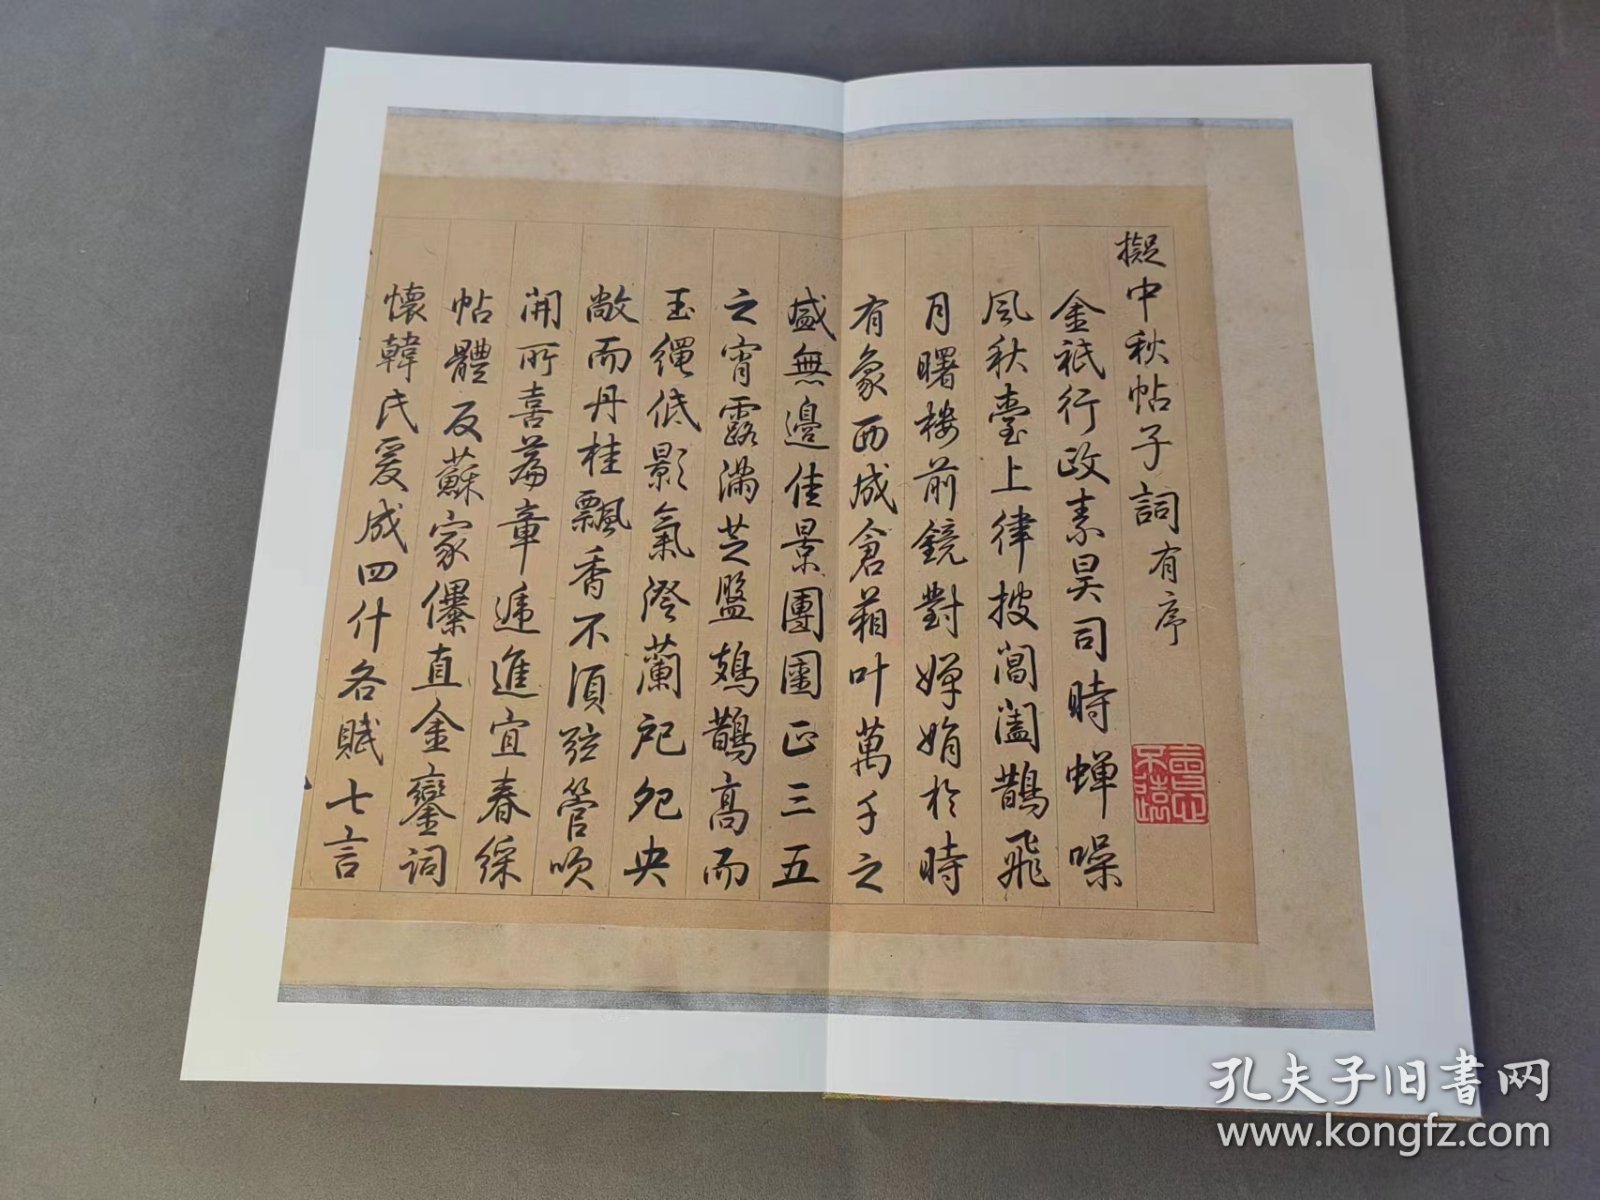 擬中秋帖子詞有序
金祇行政素昊司時蟬噪
風秋臺上律披閶闔鵲飛
月曙樓前鏡對嬋娟於時
有象西成倉葙叶萬千之
盛無邊佳景團圞正三五
之宵露滿芝盤鳷鵲高而
玉繩低影氣澄蘭戺夗央
敞而丹桂飄香不須弦管喚
開所喜篇章遞進宜春綵
帖體反蘇家儤直金鑾詞
懷韓氏爰成四什各賦七言
孔夫子旧書网
www.kongfz.com